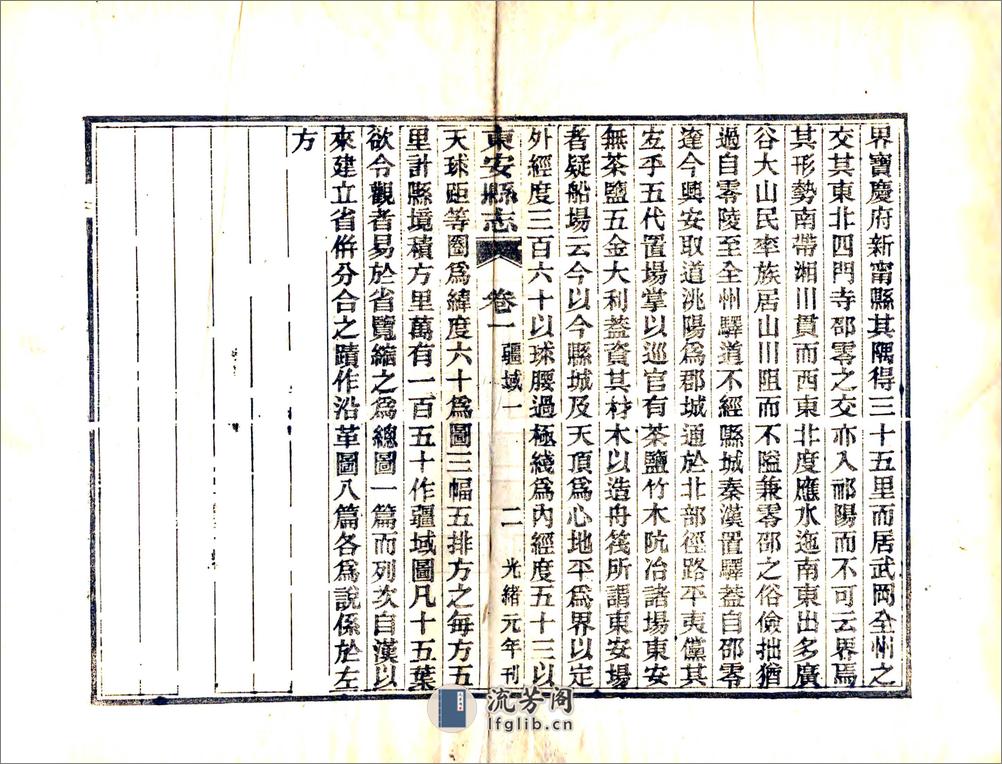 界寶慶府新甯縣其隅得三十五里而居武岡全州之
交其東北四門寺邵零之交亦入祁陽而不可云界焉
其形勢南帶湘川貫而西東北度應水迤南東出多廣
谷大山民率族居山川阻而不隘兼零邵之俗儉拙猶
過自零陵至全州驛道不經縣城秦漢置驛蓋自邵零
達今興安取道洮陽爲郡城通於北部徑路平夷儻其
在乎五代置場掌以巡官有茶鹽竹木阬冶諸場東安
無茶鹽五金大利蓋資其材木以造舟筏所謂東安場
者疑船場云今以今縣城及天頂爲心地平爲界以定
外經度三百六十以球腰過極綫爲內經度五十三以
東安縣志 卷一 疆域一 二 光緒元年刊
天球距等圈爲緯度六十爲圖三幅五排方之每方五
里計縣境積方里萬有一百五十作疆域圖凡十五葉
欲令觀者易於省覽縮之爲總圖一篇而列次自漢以
來建立省併分合之蹟作沿革圖八篇各爲說係於左
方
流芳阁
lfglib.cn